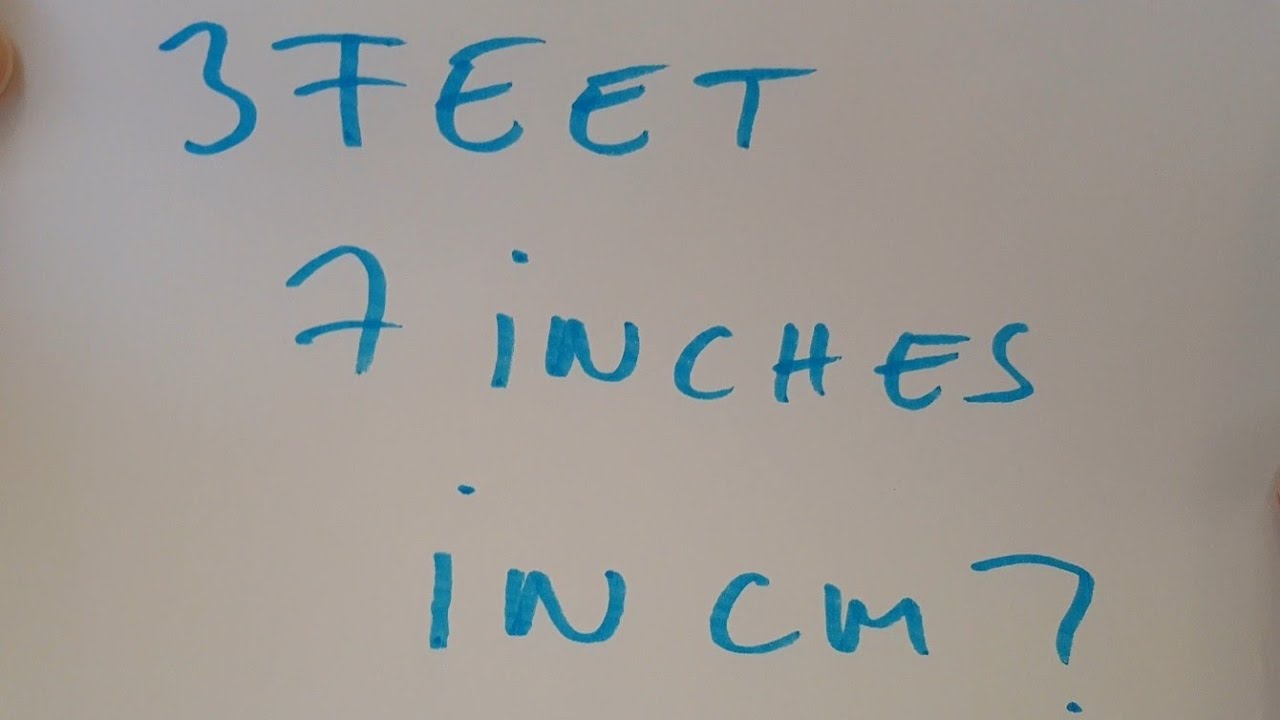 3 FEET
7 iNCHES
iN CM?